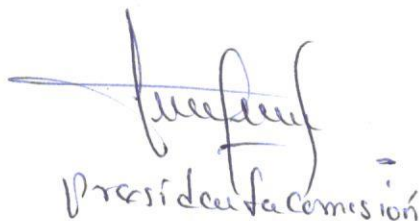 Presidenta comisión